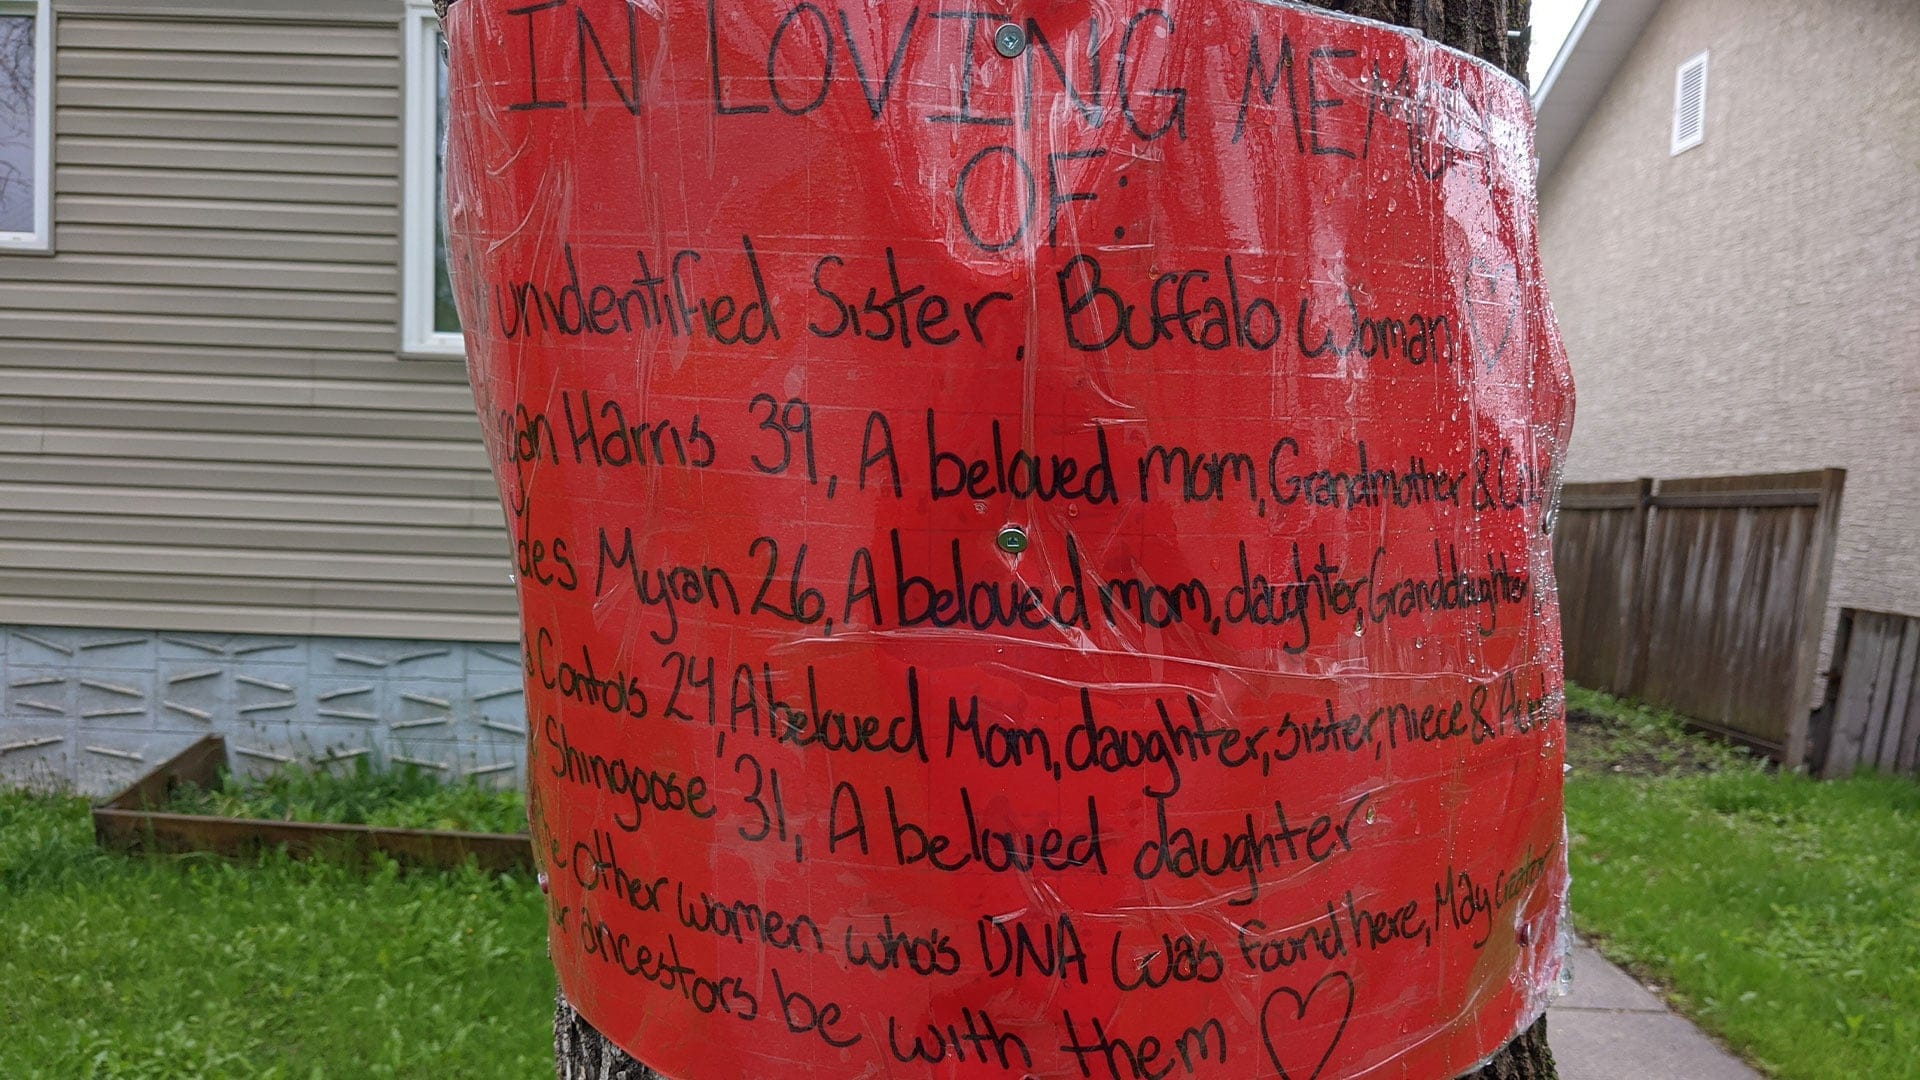 IN LOVING
OF:
unidentified Sister, Buffalo Woman
Harris 39, A beloved mom, Grandmother &
Myran 26, A beloved mom, daughter, Granddaughter
Contois 24, A beloved Mom, daughter, sister, niece &
Shingoose 31, A beloved daughter
other women who's DNA was found here, May Creator
ancestors be with them